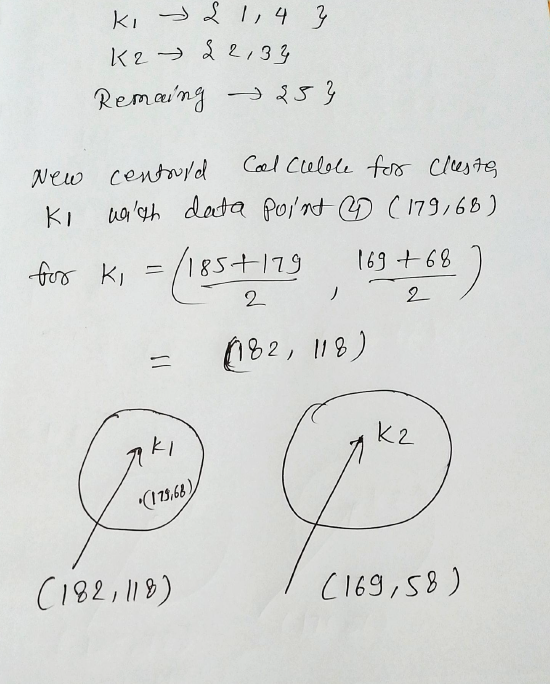 K1 → { 1, 4 }
K2 → { 2, 3 }
Remaing → { 5 }
New centroid Calculate for Cluster
K1 with data point (4) (179,68)
for K1 = ( 185+179 / 2 , 169+68 / 2 )
= (182, 118)
K1
K2
.(179,68)
(182,118)
(169,58)